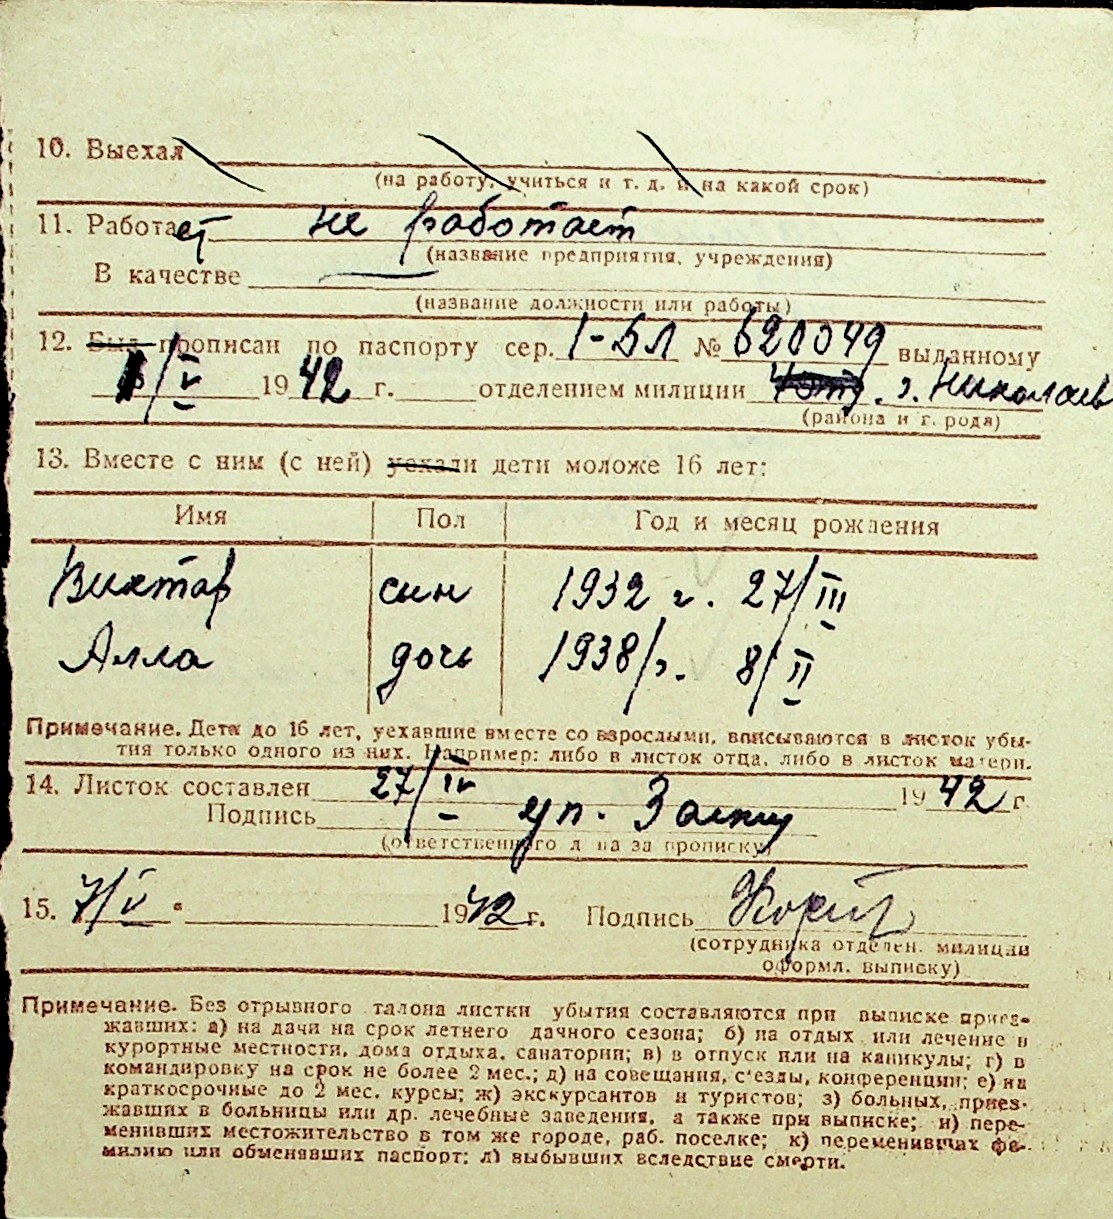 10. Выехал
(на работу, учиться и т. д. и на какой срок)
11. Работает не работает
(название предприятия, учреждения)
В качестве —
(название должности или работы)
12. Был прописан по паспорту сер. I-БЛ № 620049 выданному
/V 1942 г. отделением милиции г. Николаев
(района и г. рода)
13. Вместе с ним (с ней) уехали дети моложе 16 лет:
Имя Пол Год и месяц рождения
Виктор син 1932 г. 27/III
Алла дочь 1938 г. 8/II
Примечание. Дети до 16 лет, уехавшие вместе со взрослыми, вписываются в листок убы-
тия только одного из них. Например: либо в листок отца, либо в листок матери.
14. Листок составлен 27/IV 1942 г.
Подпись уп.
(ответственного л на за прописку)
15. 7/V 1942 г. Подпись
(сотрудника отделен. милиции
оформл. выписку)
Примечание. Без отрывного талона листки убытия составляются при выписке приез-
жавших: а) на дачи на срок летнего дачного сезона; б) на отдых или лечение в
курортные местности, дома отдыха, санатории; в) в отпуск или на каникулы; г) в
командировку на срок не более 2 мес.; д) на совещания, с'езды, конференции; е) на
краткосрочные до 2 мес. курсы; ж) экскурсантов и туристов; з) больных, приез-
жавших в больницы или др. лечебные заведения, а также при выписке; и) пере-
менивших местожительство в том же городе, раб. поселке; к) переменивших фа-
милию или обменявших паспорт; л) выбывших вследствие смерти.